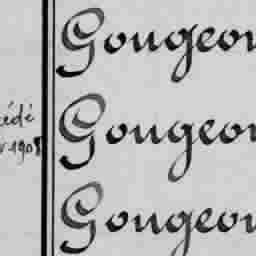 Gougeon
cédé
Gougeon
1908
Gougeon